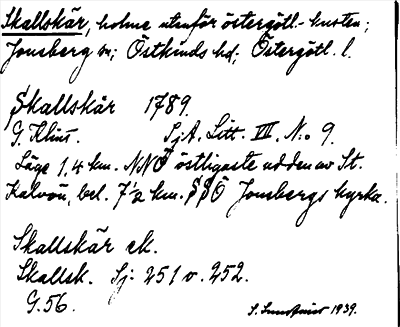 Skallskär, holme utanför östergötl.-kusten;
Jonsberg sn; Östkinds hd; Östergötl. l.
Skallskär 1789.
G. Klint. SjA. Litt. VIII. No 9.
Läge 1,4 km. NNÖ östligaste udden av St.
Kalvön, bel. 7½ km. SSÖ Jonsbergs kyrka.
Skallskär ek.
Skallsk. Sj: 251 v. 252.
G. 56.
S. 1939.